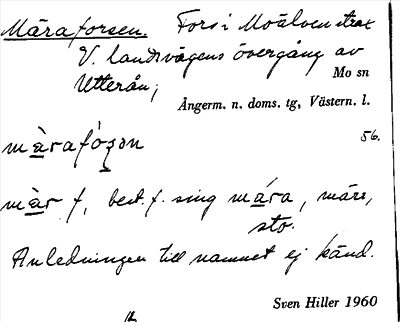 Måraforsen. Fors i Moälven strax
V. landsvägens övergång av
Utterån;
Mo sn
Ångerm. n. doms. tg, Västern. l.
56.
mår f, best. f. sing måra, märr,
sto.
Anledningen till namnet ej känd.
Sven Hiller 1960